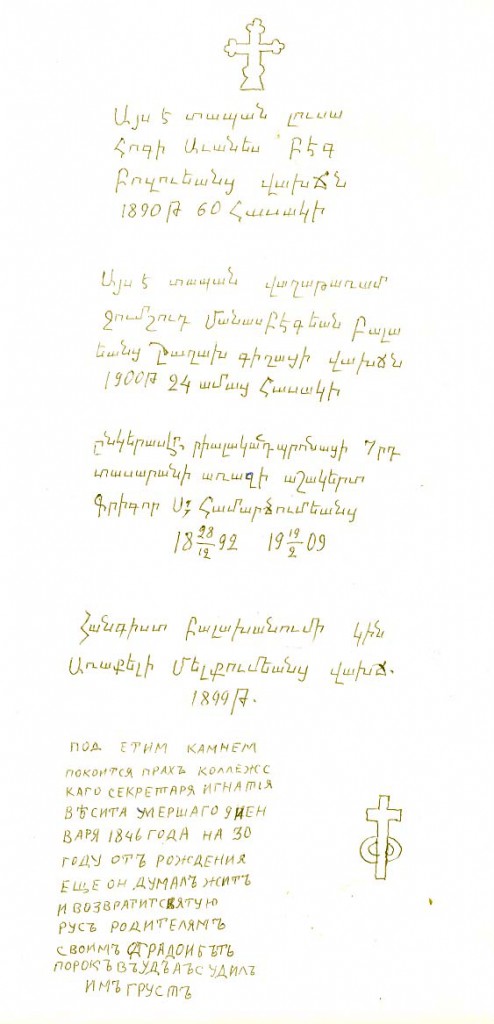 Այս է տապան լուսա
Հոգի Աւանես բէգ
Բոլուեանց վախճն
1890 Թ 60 Հասակի
Այս է տապան վաղաթառամ
Ջումշուդ Մանասբէգեան Բալա
եանց Շաղախ գիղացի վախճն
1900 Թ 24 ամաց Հասակի
րիալական դպրոնացի 7րդ
տասարանի առաջի աշակերտ
Գրիգոր Համարձումեանց
18 28/12 92 19 19/2 09
Հանգիստ Բալախանումի կին
Առաքելի Մելքումեանց վախճ.
1899 Թ.
ПОД ЕТИМ КАМНЕМ
ПОКОИТСЯ ПРАХЪ КОЛЛЕЖС
КАГО СЕКРЕТАРЯ ИГНАТІЯ
ВѢСИТА УМЕРШАГО 9 ИЕН
ВАРЯ 1846 ГОДА НА 30
ГОДУ ОТЪ РОЖДЕНИЯ
ЕЩЕ ОН ДУМАЛЪ ЖИТ
И ВОЗВРАТИТ СВЯТУЮ
РУСЬ РОДИТЕЛЯМЪ
СВОИМЪ
ПОРОКЪ СУДИЛЪ
ИМЪ ГРУСТЪ